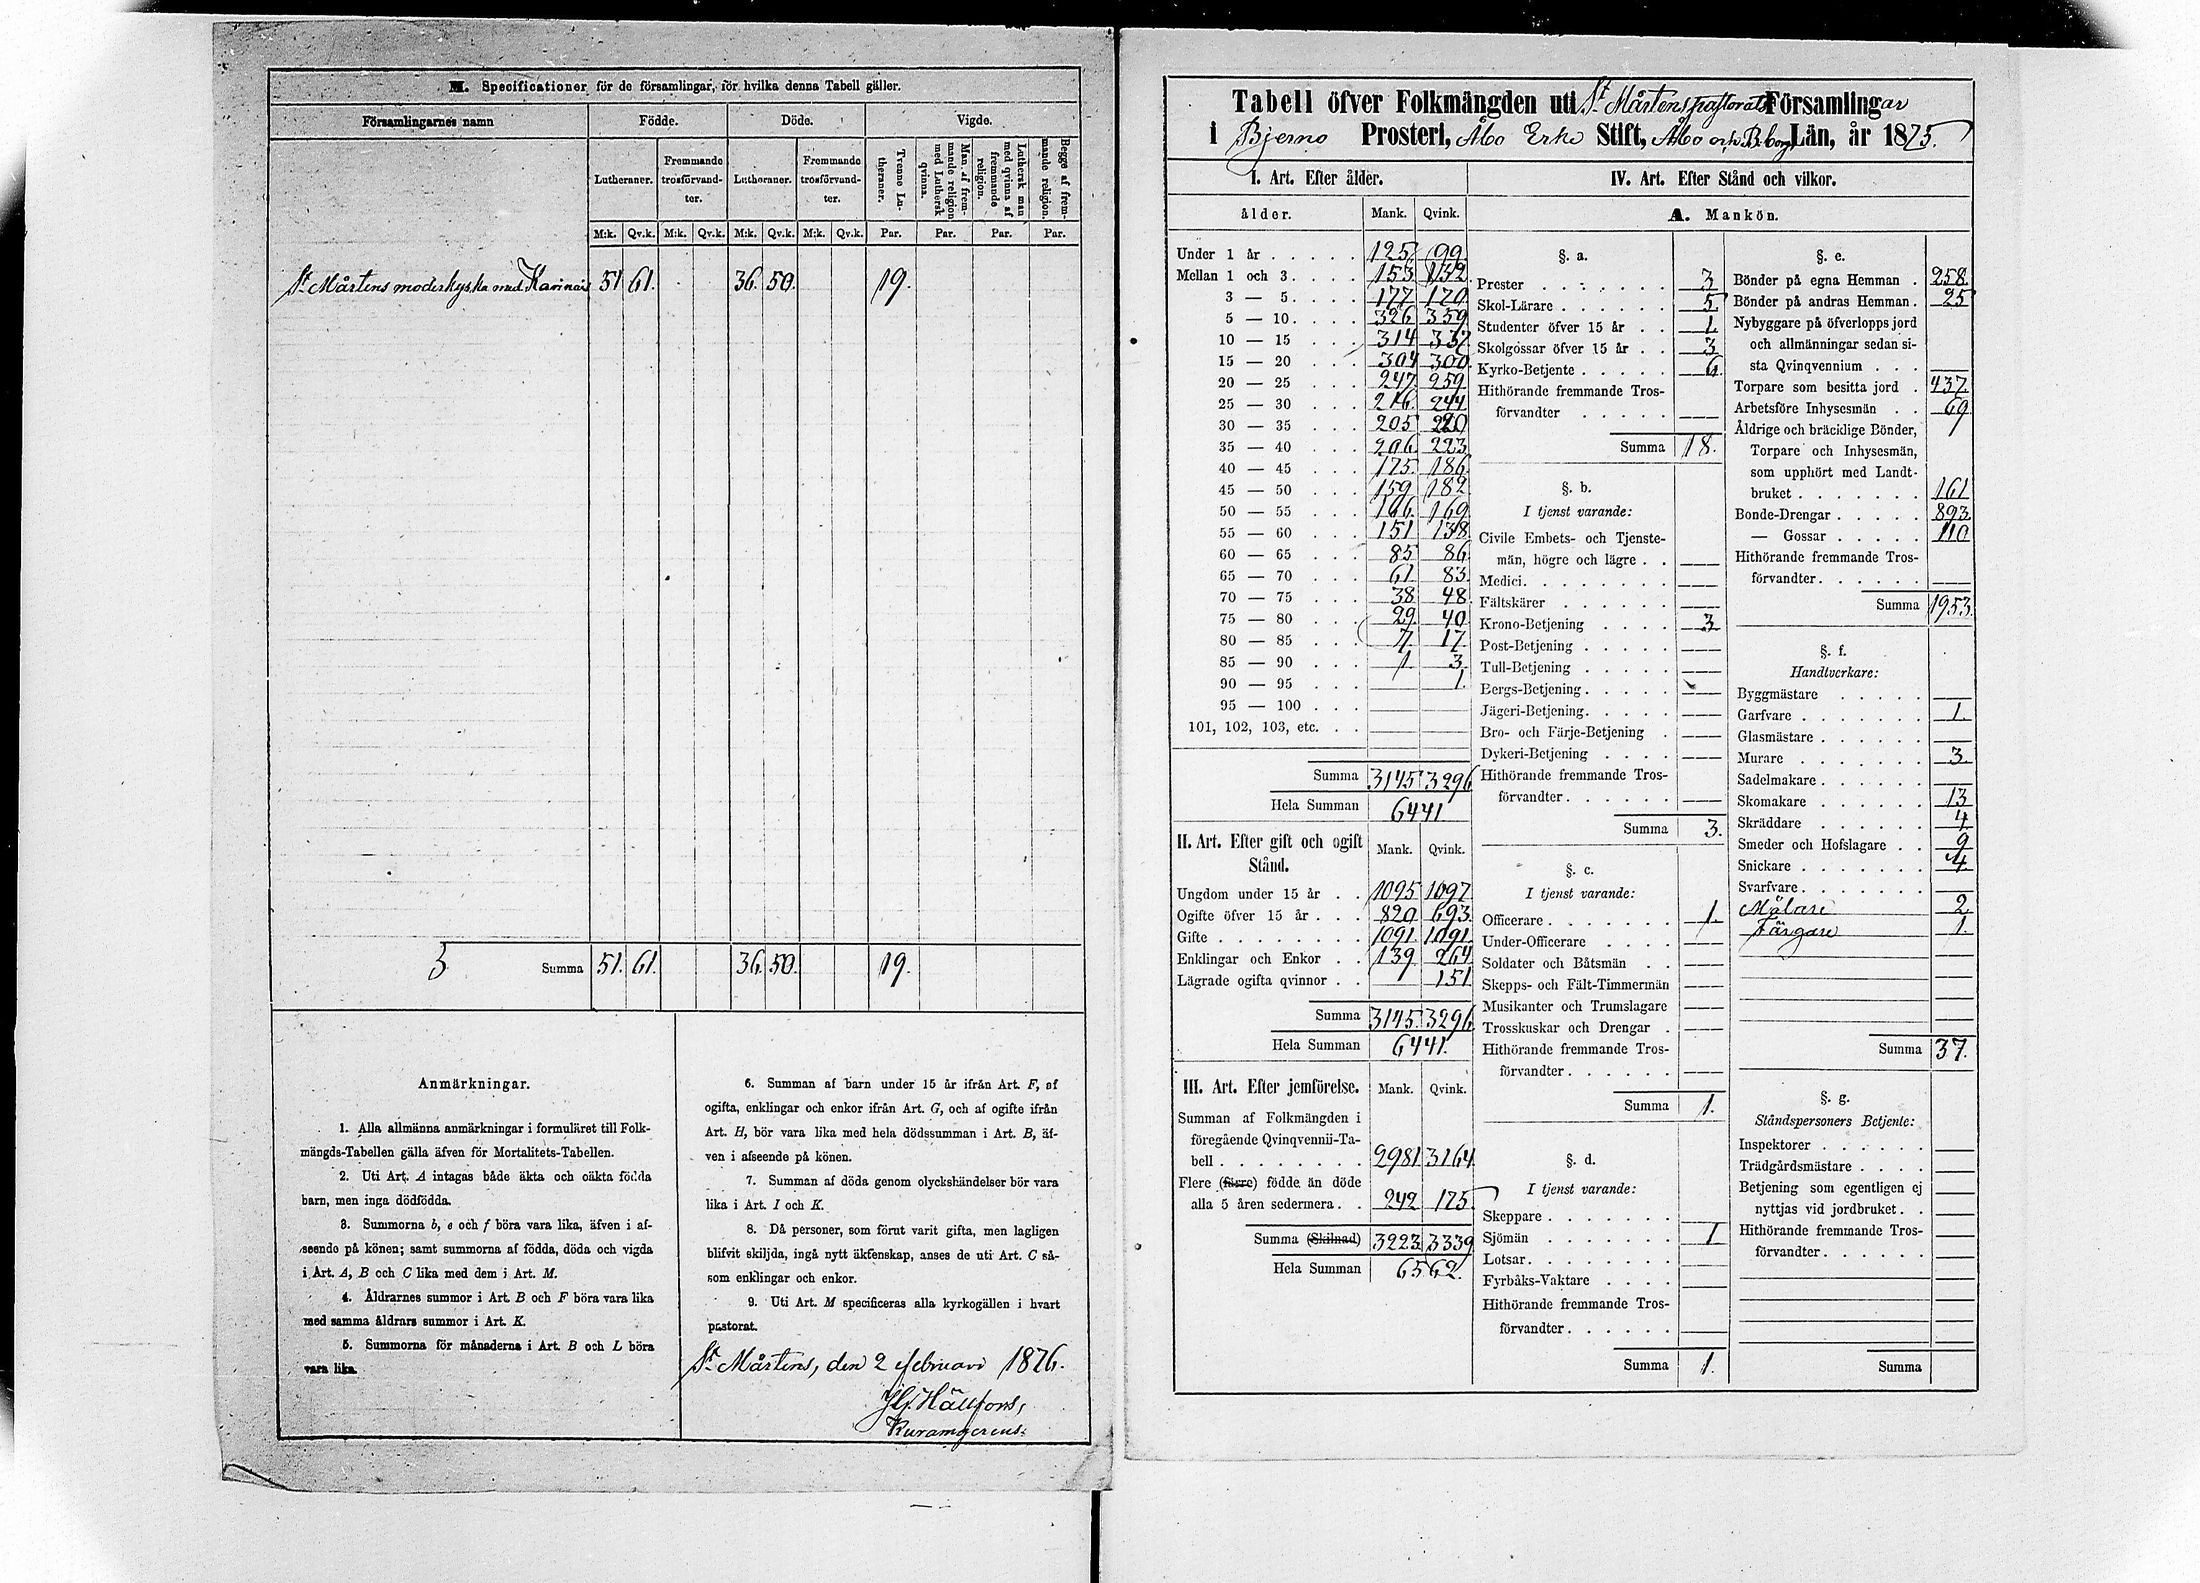 M. Specificationer för de församlingar, för hvilka denna Tabell gäller.
Församlingarnes namn Födde. Döde. Vigde.
Lutheraner. Fremmande trosförvandter. Lutheraner. Fremmande trosförvandter. Tvenne Lutheraner. Man af fremmande religion med Luthersk qvinna. Luthersk man med qvinna af fremmande religion. Begge af fremmande religion.
M:k. Qv.k. M:k. Qv.k. M:k. Qv.k. M:k. Qv.k. Par. Par. Par. Par.
St Mårtens moderkyrka med Karinais 51 61. 36. 50. 19.
3 Summa 51. 61. 36. 50. 19.
Anmärkningar.
1. Alla allmänna anmärkningar i formuläret till Folk-
mängds-Tabellen gälla äfven för Mortalitets-Tabellen.
2. Uti Art. A intagas både äkta och oäkta födda
barn, men inga dödfödda.
3. Summorna b, e och f böra vara lika, äfven i af-
seende på könen; samt summorna af födda, döda och vigda
i Art. A, B och C lika med dem i Art. M.
4. Åldrarnes summor i Art. B och F böra vara lika
med samma åldrars summor i Art. K.
5. Summorna för månaderna i Art. B och L böra
vara lika.
6. Summan af barn under 15 år ifrån Art. F, af
ogifta, enklingar och enkor ifrån Art. G, och af ogifte ifrån
Art. H, bör vara lika med hela dödssumman i Art. B, äf-
ven i afseende på könen.
7. Summan af döda genom olyckshändelser bör vara
lika i Art. I och K.
8. Då personer, som förut varit gifta, men lagligen
blifvit skiljda, ingå nytt äkfenskap, anses de uti Art. C så-
som enklingar och enkor.
9. Uti Art. M specificeras alla kyrkogällen i hvart
pastorat.
St Mårtens, den 2 februari 1876.
Hällfors,
Tabell öfver Folkmängden uti St Mårtens pastorats Församlingar
i Bjerno Prosteri, Åbo Erke Stift, Åbo och B.borg Län, år 1875.
I. Art. Efter ålder.
ålder. Mank. Qvink.
Under 1 år 125 99
Mellan 1 och 3 153 132
3 — 5 177 170
5 — 10 326 359
10 — 15 314 337
15 — 20 304 300
20 — 25 247 259
25 — 30 216 244
30 — 35 205 220
35 — 40 206 223
40 — 45 175 186
45 — 50 159 182
50 — 55 166 169
55 — 60 151 138
60 — 65 85 86
65 — 70 61 83
70 — 75 38 48
75 — 80 29 40
80 — 85 7 17
85 — 90 1 3
90 — 95 1
95 — 100
101, 102, 103, etc.
Summa 3145 3296
Hela Summan 6441
II. Art. Efter gift och ogift Stånd. Mank. Qvink.
Ungdom under 15 år 1095 1097
Ogifte öfver 15 år 820 693
Gifte 1091 1091
Enklingar och Enkor 139 264
Lägrade ogifta qvinnor 151
Summa 3145 3296
Hela Summan 6441.
III. Art. Efter jemförelse. Mank. Qvink.
Summan af Folkmängden i
föregående Qvinqvennii-Ta-
bell 2981 3164
Flere (färre) födde än döde
alla 5 åren sedermera 242 175
Summa (Skilnad) 3223 3339
Hela Summan 6562.
IV. Art. Efter Stånd och vilkor.
A. Mankön.
§. a.
Prester 3
Skol-Lärare 5
Studenter öfver 15 år 1
Skolgossar öfver 15 år 3
Kyrko-Betjente 6
Hithörande fremmande Tros-
förvandter
Summa 18.
§. b.
I tjenst varande:
Civile Embets- och Tjenste-
män, högre och lägre
Medici
Fältskärer
Krono-Betjening 3
Post-Betjening
Tull-Betjening
Bergs-Betjening
Jägeri-Betjening
Bro- och Färje-Betjening
Dykeri-Betjening
Hithörande fremmande Tros-
förvandter
Summa 3.
§. c.
I tjenst varande:
Officerare 1.
Under-Officerare
Soldater och Båtsmän
Skepps- och Fält-Timmermän
Musikanter och Trumslagare
Trosskuskar och Drengar
Hithörande fremmande Tros-
förvandter
Summa 1.
§. d.
I tjenst varande:
Skeppare
Sjömän 1
Lotsar
Fyrbåks-Vaktare
Hithörande fremmande Tros-
förvandter
Summa 1.
§. e.
Bönder på egna Hemman 258
Bönder på andras Hemman 25
Nybyggare på öfverlopps jord
och allmänningar sedan si-
sta Qvinqvennium
Torpare som besitta jord 437
Arbetsföre Inhysesmän 69
Åldrige och bräcklige Bönder,
Torpare och Inhysesmän,
som upphört med Landt-
bruket 161
Bonde-Drengar 893
— Gossar 110
Hithörande fremmande Tros-
förvandter
Summa 1953.
§. f.
Handtverkare:
Byggmästare
Garfvare 1.
Glasmästare
Murare 3.
Sadelmakare
Skomakare 13
Skräddare 4
Smeder och Hofslagare 9
Snickare 4.
Svarfvare
Målare 2
Färgare 1.
Summa 37.
§. g.
Ståndspersoners Betjente:
Inspektorer
Trädgårdsmästare
Betjening som egentligen ej
nyttjas vid jordbruket
Hithörande fremmande Tros-
förvandter
Summa